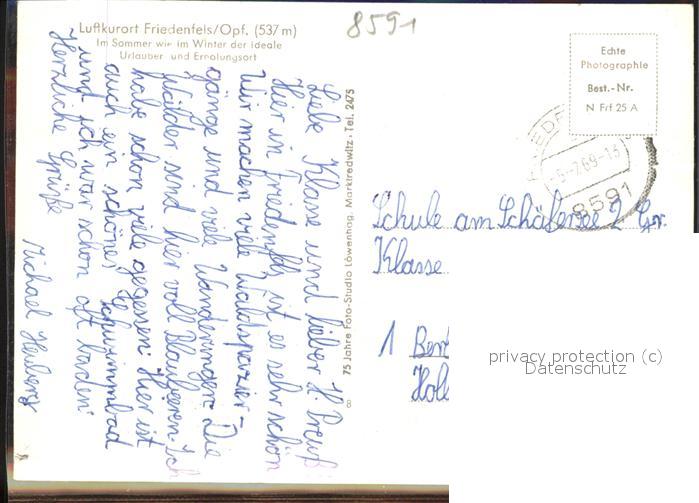 Luftkurort Friedenfels/Opf. (537 m)
Im Sommer wie im Winter der ideale
Urlauber- und Erholungsort
8591
Liebe Klasse und lieber H. Preuß!
Hier in Friedenfels ist es sehr schön
Wir machen viele Waldspazier-
gänge und viele Wanderungen. Die
Wälder sind hier voll Blaubeeren. Ich
habe schon viele gegessen. Hier ist
auch ein schönes Schwimmbad
und ich war schon oft baden.
Herzliche Grüße
Michael
75 Jahre Foto-Studio Löwenhag, Marktredwitz · Tel. 2475
8
Echte
Photographie
Best.-Nr.
N Frf 25 A
-7.69-13
8591
Schule am Schäfersee 2
Klasse
1 Berl
Holl
privacy protection (c)
Datenschutz